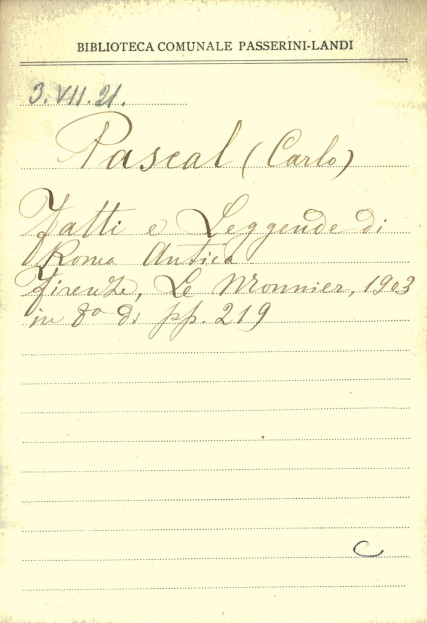 BIBLIOTECA COMUNALE PASSERINI-LANDI
3.VII.21.
Pascal (Carlo)
Fatti e Leggende di
Roma Antica
Firenze, Le Monnier, 1903
in 8° di pp. 219
C